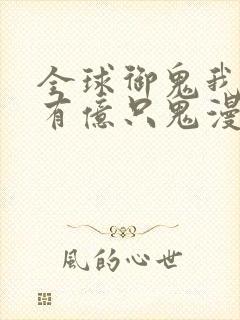 全球御鬼我
有億只鬼漫
風的心世